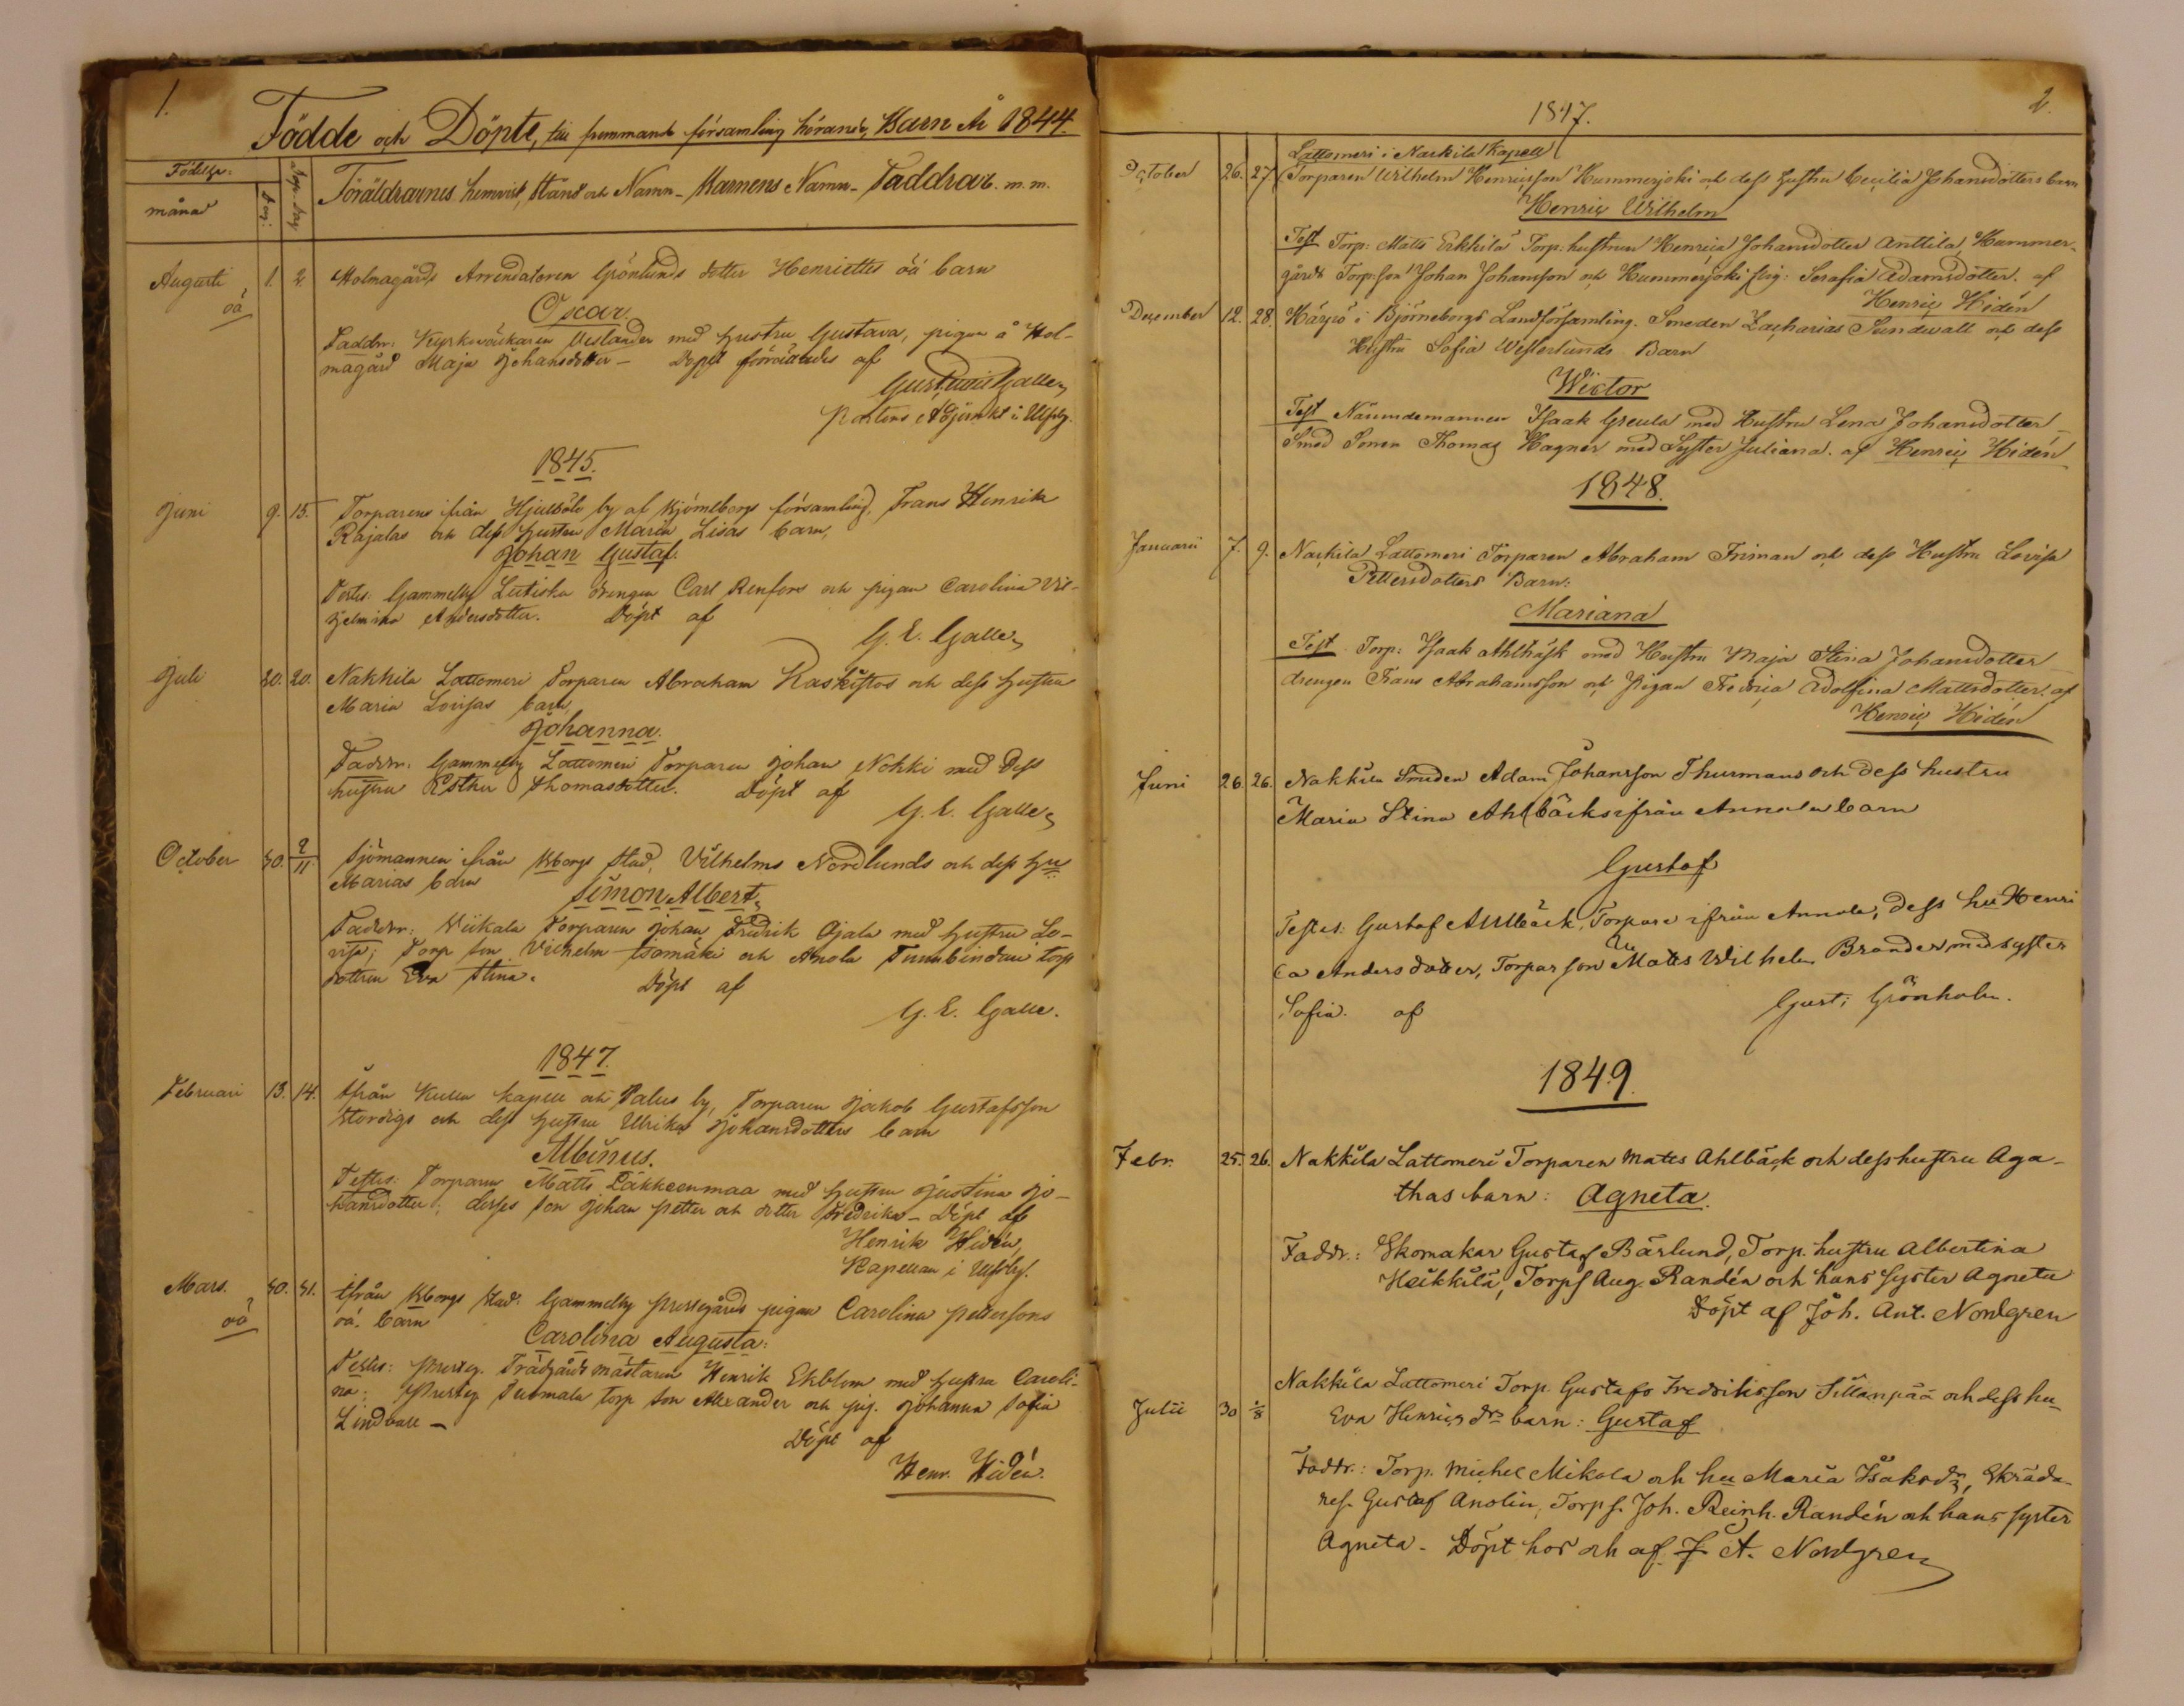 1.
Födde och Döpte, till främmande församling hörande, Barn År 1844.
Födelse-
månad
Dag.
Döp. Dag
Föräldrarnes hemvist, Stånd och Namn - Barnens Namn - Faddrar. m. m.
Augusti 1. 2. Holmagårds Arrendatoren Grönlunds dotter Henriettes oä barn
oä
Oscar.
Faddr: Kyrkoväktaren Veslander med hustru Gustava, pigan å Hol-
magård Maja Johansdotter - Döpt förrättades af
Gust. Galle,
Pastors Adjunkt i Ulfsby.
1845.
Juni 9. 15. Torparens ifrån Hjulböle by af Björneborgs församling, Frans Henrik
Rajalas och dess hustru Maria Lisas barn,
Johan Gustaf.
Testes: Gammelby Lutiska drengen Carl Renfors och pigan Carolina Vil-
helmina Andersdotter. Döpt af
G. E. Galle,
Juli 20. 20. Nakkila Lattomeri Torparen Abraham Raskistos och dess hustru
Maria Lovisas barn,
Johanna.
Faddr: Gammelby Lattomeri Torparen Johan Nohki med Dess
hustru Esther Thomasdotter. Döpt af
G. E. Galle,
October 30. 2/11 Sjömannen ifrån Bborgs stad, Vilhelms Nordlunds och dess hu
Marias barn
Simon Albert,
Faddr: Viikala Torparen Johan Fredrik Ojala med hustru Lo-
visa; Torp son Vilhelm Isomäki och Anola Tunnbindari torp
dottren Eva Stina. Döpt af
G. E. Galle.
1847.
Februari 13. 14. Ifrån Kulla kapell och Palus by, Torparen Jakob Gustafsson
Stordigs och dess hustru Ulrika Johansdotters barn
Albinus.
Testes: Torparen Matts Lakkeenmaa med hustru Justina Jo-
hansdotter; desses son Johan Petter och dotter Fredrika - Döpt af
Henrik Hidén,
Kapellan i Ulfsby.
Mars. 30. 31. Ifrån Bborgs stad: Gammelby prestgårds pigan Carolina Petterssons
oä oä. barn
Carolina Augusta.
Testes: prestg. Trädgårdsmästaren Henrik Ekblom med hustru Caroli-
na; Prestg. torp son Alexander och pig. Johanna Sofia
Lindvall -
Döpt af
Henr. Hidén.
2.
1847.
Lattomeri i Nackila Kapell
October 26. 27. Torparen Wilhelm Henricsson Hummerjoki och dess hustru Cecilia Johansdotters barn
Henric Wilhelm
Test Torp: Matts Erkkilä Torp: hustrun Henrica Johansdotter Anttila, Hammer-
gårds Torp:son Johan Johansson och Hummerjoki pig: Serafia Adamsdotter. af
Henric Hidén
December 12. 28. Härpö i Björneborgs Landförsamling. Smeden Zacharias Sundwall och dess
Hustru Sofia Westerlunds Barn
Wictor
Test Nämndemannen Isaak Greula med Hustru Lena Johansdotter
Smed Sonen Thomas Wagner med Syster Juliana. af Henric Hidén
1848.
Januarii 7. 9. Nackila Lattomeri Torparen Abraham Friman och dess Hustru Lovisa
Pettersdotters Barn:
Mariana
Test Torp: Isaak Ahlbäck med Hustru Maja Stina Johansdotter
drengen Frans Abrahamsson och pigan Fredrica Adolfina Mattsdotter. af
Henric Hidén
Juni 26. 26. Nakkila Smeden Adam Johansson Thurmans och dess hustru
Maria Stina Ahlbäcks ifrån Annola barn
Gustaf
Testes: Gustaf Ahlbäck, Torpare ifrån Annola, dess hu Henri
ca Andersdotter, Torpar son Matts Wilhelm Brander med syster
Sofia. af Gust: Grönholm.
1849.
Febr. 25. 26. Nakkila Lattomeri Torparen Matts Ahlbäck och dess hustru Aga-
thas barn: Agneta.
Faddr.: Skomakar Gustaf Bärlund, Torp. hustru Albertina
Heikkilä, Torp s Aug. Randén och hans syster Agneta
Döpt af Joh. Ant. Nordgren
Julii 30 1/8 Nakkila Lattomeri Torp. Gustafs Fredriksson Sillanpää och dess hu
Eva Henricsdrs barn: Gustaf
Faddr.: Torp. Michel Mikola och hu Maria Isaksdr, Skräda-
res. Gustaf Anolin, Torp s. Joh. Reinh. Randén och hans syster
Agneta. Döpt hos och af J. A. Nordgren